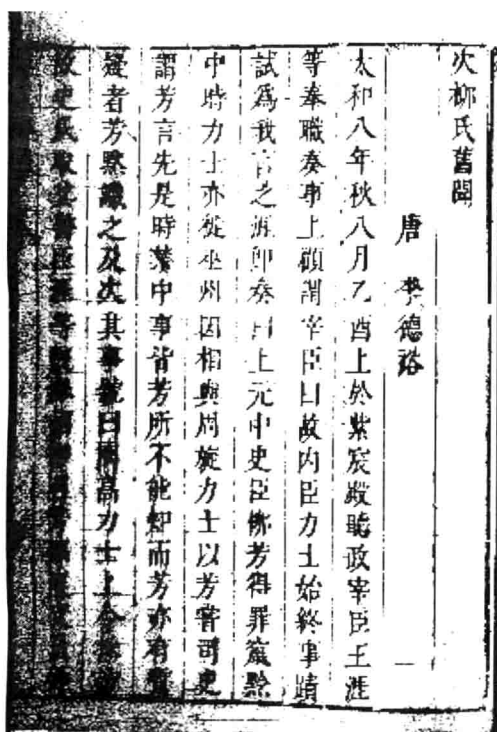 次柳氏舊聞
唐 李德裕 一
太和八年秋八月乙酉上於紫宸殿聽政宰臣王涯
等奉職奏事上顧謂宰臣曰故内臣力士始終事蹟
試爲我言之涯即奏曰上元中史臣柳芳得罪竄黔
中時力士亦從巫州因相與周旋力士以芳嘗司史
謂芳言先是時禁中事皆芳所不能知而芳亦有質
疑者芳默識之及次其事號曰問高力士上令
故史氏取其書臣涯等